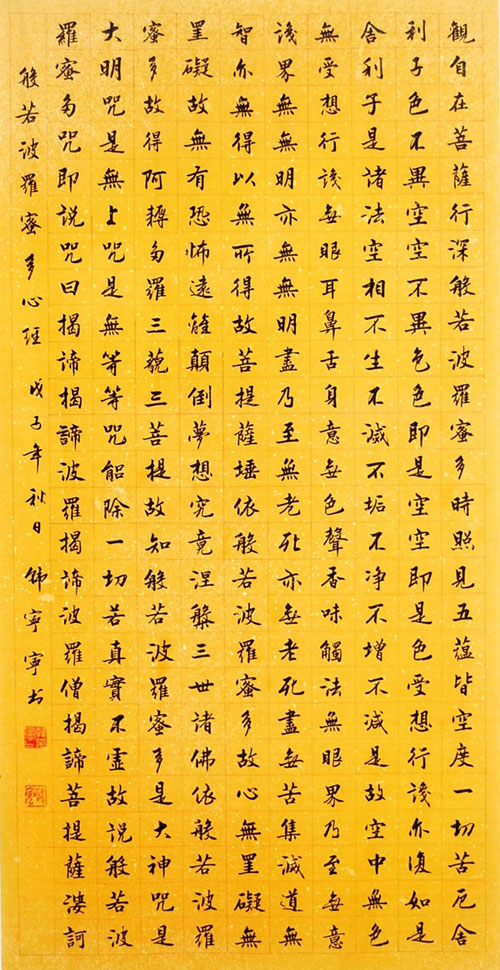 観自在菩薩行深般若波羅蜜多時照見五蘊皆空度一切苦厄舍
利子色不異空空不異色色即是空空即是色受想行識亦復如是
舍利子是諸法空相不生不滅不垢不净不增不减是故空中無色
無受想行識無眼耳鼻舌身意無色聲香味觸法無眼界乃至無意
識界無無明亦無無明盡乃至無老死亦無老死盡無苦集滅道無
智亦無得以無所得故菩提薩埵依般若波羅蜜多故心無罣礙無
罣礙故無有恐怖遠離顛倒夢想究竟涅槃三世諸佛依般若波羅
蜜多故得阿耨多羅三藐三菩提故知般若波羅蜜多是大神咒是
大明咒是無上咒是無等等咒能除一切苦真實不虛故說般若波
羅蜜多咒即説咒曰揭諦揭諦波羅揭諦波羅僧揭諦菩提薩婆訶
般若波羅蜜多心經 戊子年秋日 寧寧书